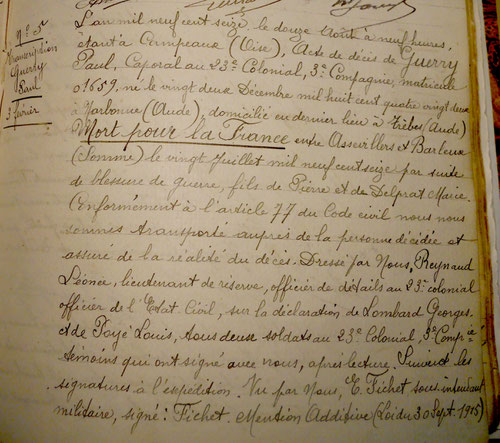 N° 5
Transcription
Guerry
Paul
3 février
L'an mil neuf cent seize, le douze Août à neuf heures,
étant à Campeaux (Oise), Acte de décès de Guerry
Paul, Caporal au 23e Colonial, 3e Compagnie, matricule
01659, né le vingt deux Décembre mil huit cent quatre vingt deux
à Narbonne (Aude), domicilié en dernier lieu à Trèbes (Aude)
Mort pour la France entre Assevillers et Barleux
(Somme) le vingt Juillet mil neuf cent seize par suite
de blessure de Guerre, fils de Pierre et de Delprat Marie.
Conformément à l'article 77 du Code civil nous nous
sommes transporté auprès de la personne décédée et
assuré de la réalité du décès. Dressé par Nous, Reynaud
Léonce, lieutenant de réserve, officier de détails au 23e colonial
officier de l'Etat Civil, sur la déclaration de Lombard Georges
et de Poyé Louis, tous deux soldats au 23e Colonial, 3e Compie
témoins qui ont signé avec nous, après lecture. Suivent les
signatures à l'expédition. Vu par Nous, E. Fichet sous intendant
militaire, signé: Fichet Mention Additive (Loi du 30 Sept. 1915)